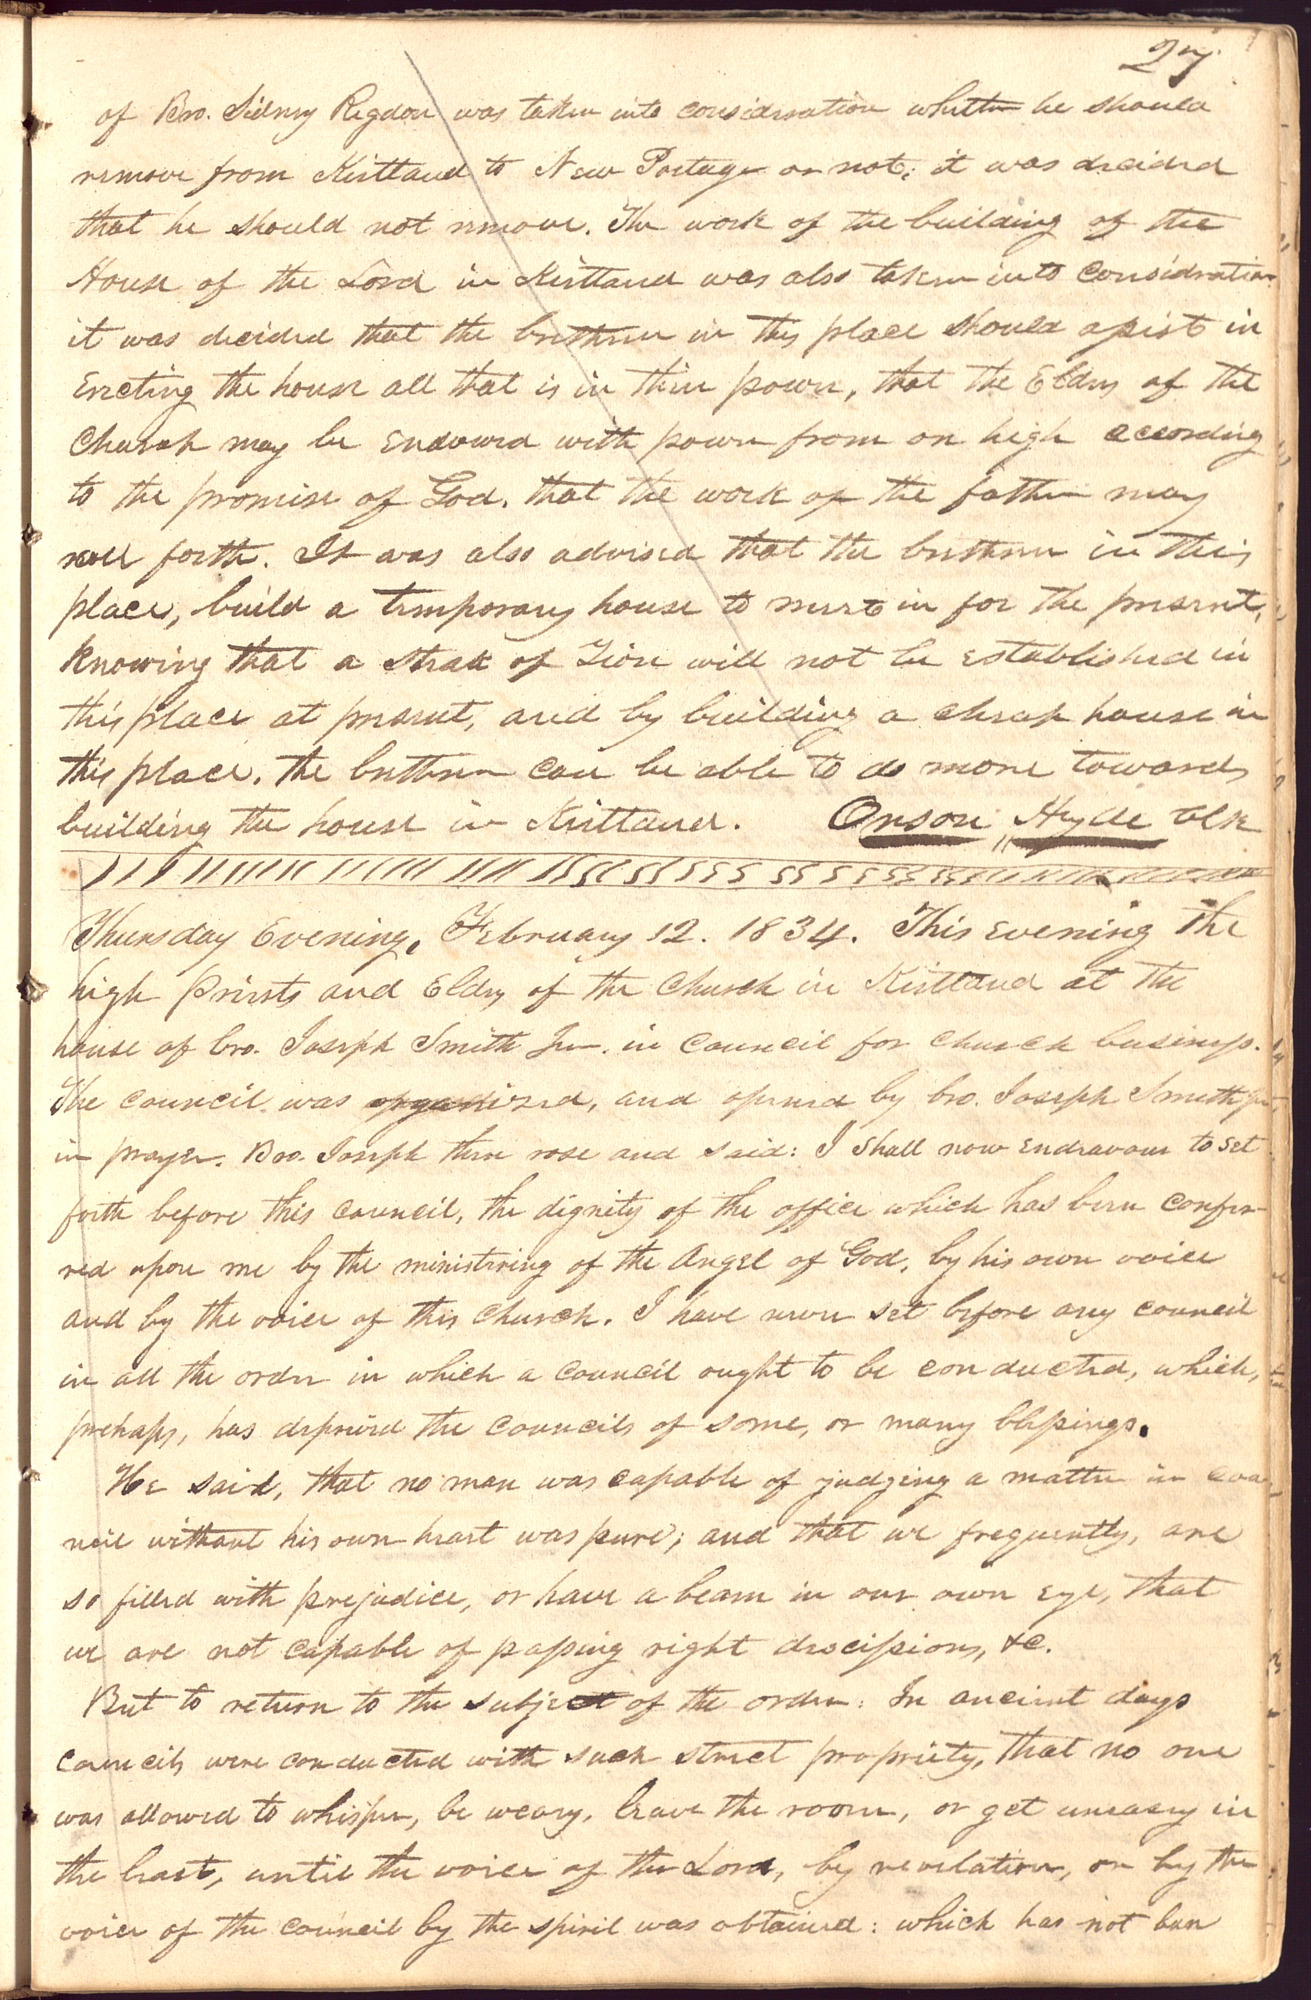 27
of Bro. Sidney Rigdon was taken into consideration whether he should
remove from Kirtland to New Portage or not; it was decided
that he should not remove. The work of the building of the
House of the Lord in Kirtland was also taken into consideration
it was decided that the brethren in this place should assist in
Erecting the house all that is in their power, that the Elders of the
Church may be Endowed with power from on high according
to the promise of God, that the work of the father may
roll forth. It was also advised that the brethren in this
place, build a temporary house to meet in for the present,
knowing that a Steak of Zion will not be established in
this place at present, and by building a cheap house in
this place. the brethren can be able to do more towards
building the house in Kirtland. Orson Hyde Clk
Thursday Evening, February 12. 1834. This evening the
high Priests and Elders of the Church in Kirtland at the
house of bro. Joseph Smith Jun. in Council for Church business.
The council was organized, and opened by bro. Joseph Smith Jun.
in prayer. Bro. Joseph then rose and said: I shall now endeavour to set
forth before this council, the dignity of the office which has been confer-
red upon me by the ministring of the Angel of God, by his own voice
and by the voice of this Church. I have never set before any council
in all the order in which a Council ought to be conducted, which,
prehaps, has deprived the Councils of some, or many blessings.
He said, that no man was capable of judging a matter in coun-
cil without his own heart was pure; and that we frequently, are
so filled with prejudice, or have a beam in our own eye, that
we are not capable of passing right descissions, &c.
But to return to the subject of the order: In ancient days
Councils were conducted with such strict propriety, that no one
was allowed to whisper, be weary, leave the room, or get uneasy in
the least, until the voice of the Lord, by revelation, or by the
voice of the council by the spirit was obtained: which has not been